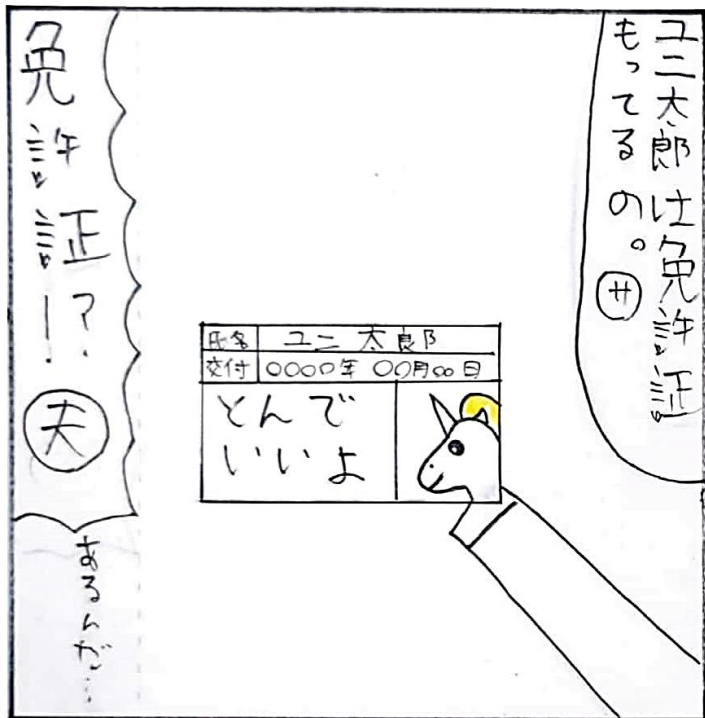 ユニ太郎は免許証
もってるの。サ
氏名 ユニ太郎
交付 〇〇〇〇年 〇〇月〇〇日
とんで
いいよ
免許証!? 夫
あるんだ…